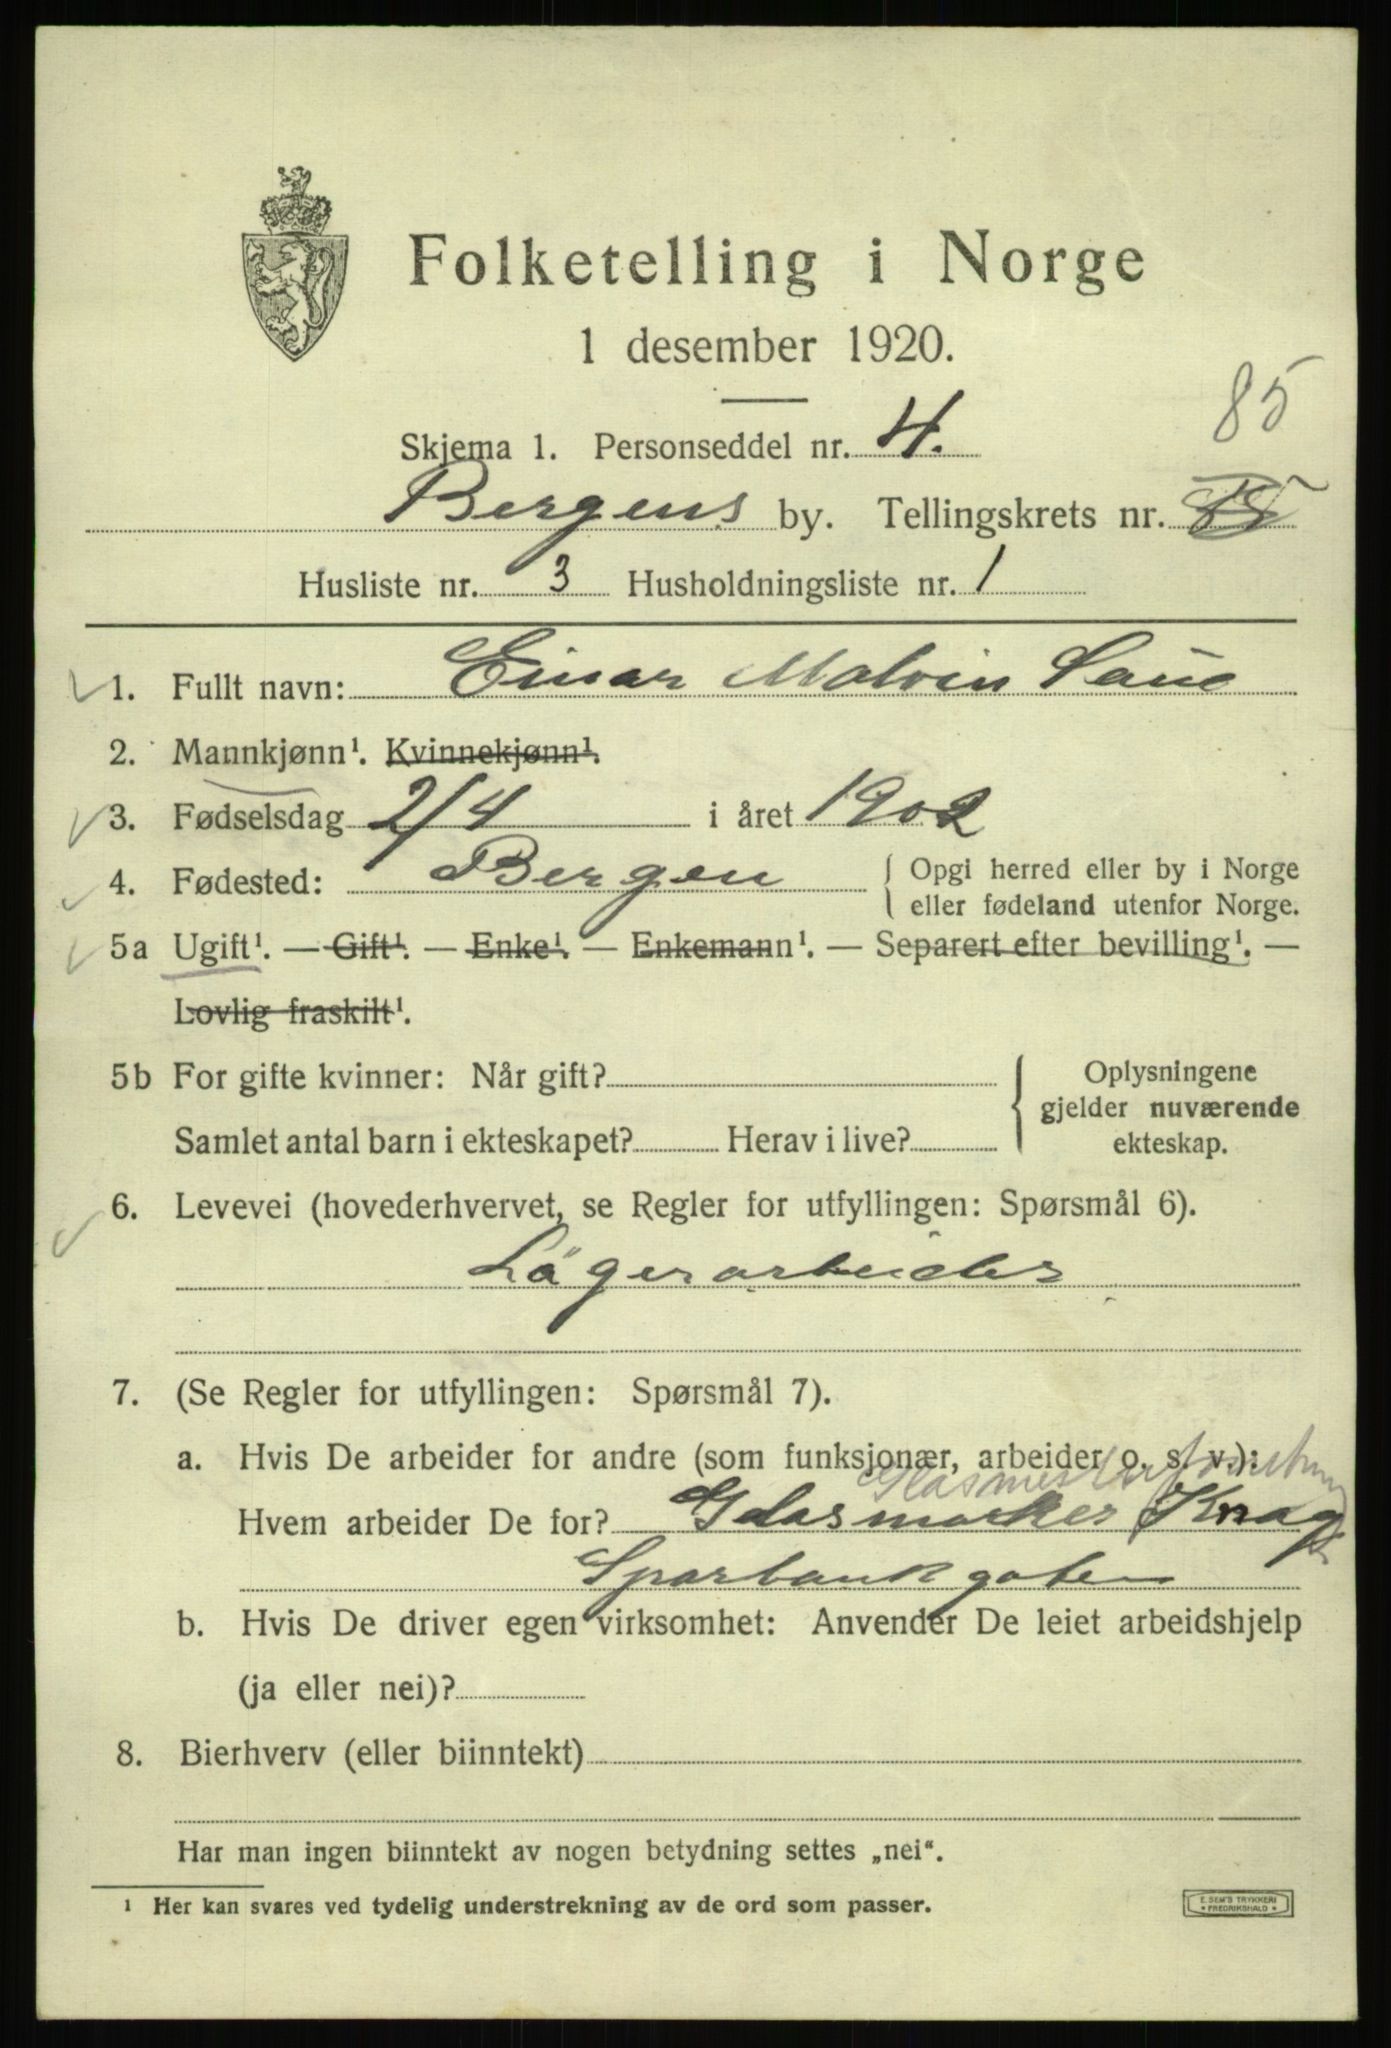 Folketelling i Norge
1 desember 1920.
85
Skjema 1. Personseddel nr. 4.
Bergens by. Tellingskrets nr.
Husliste nr. 3 Husholdningsliste nr. 1
1. Fullt navn: Einar Malvin Saue
2. Mannkjønn¹. Kvinnekjønn¹.
3. Fødselsdag 2/4 i året 1902
4. Fødested: Bergen { Opgi herred eller by i Norge
eller fødeland utenfor Norge.
5a Ugift¹. — Gift¹. — Enke¹. — Enkemann¹. — Separert efter bevilling¹. —
Lovlig fraskilt¹.
5b For gifte kvinner: Når gift? { Oplysningene
gjelder nuværende
Samlet antal barn i ekteskapet? Herav i live? ekteskap.
6. Levevei (hovederhvervet, se Regler for utfyllingen: Spørsmål 6).
Lagerarbeider
7. (Se Regler for utfyllingen: Spørsmål 7).
a. Hvis De arbeider for andre (som funksjonær, arbeider o. s. v.):
Glasmesterforretning
Hvem arbeider De for? Glasmarker Knag
Sparbankgaten
b. Hvis De driver egen virksomhet: Anvender De leiet arbeidshjelp
(ja eller nei)?
8. Bierhverv (eller biinntekt)
Har man ingen biinntekt av nogen betydning settes „nei“.
¹ Her kan svares ved tydelig understrekning av de ord som passer.
E. SEM'S TRYKKERI
* FREDRIKSHALD *